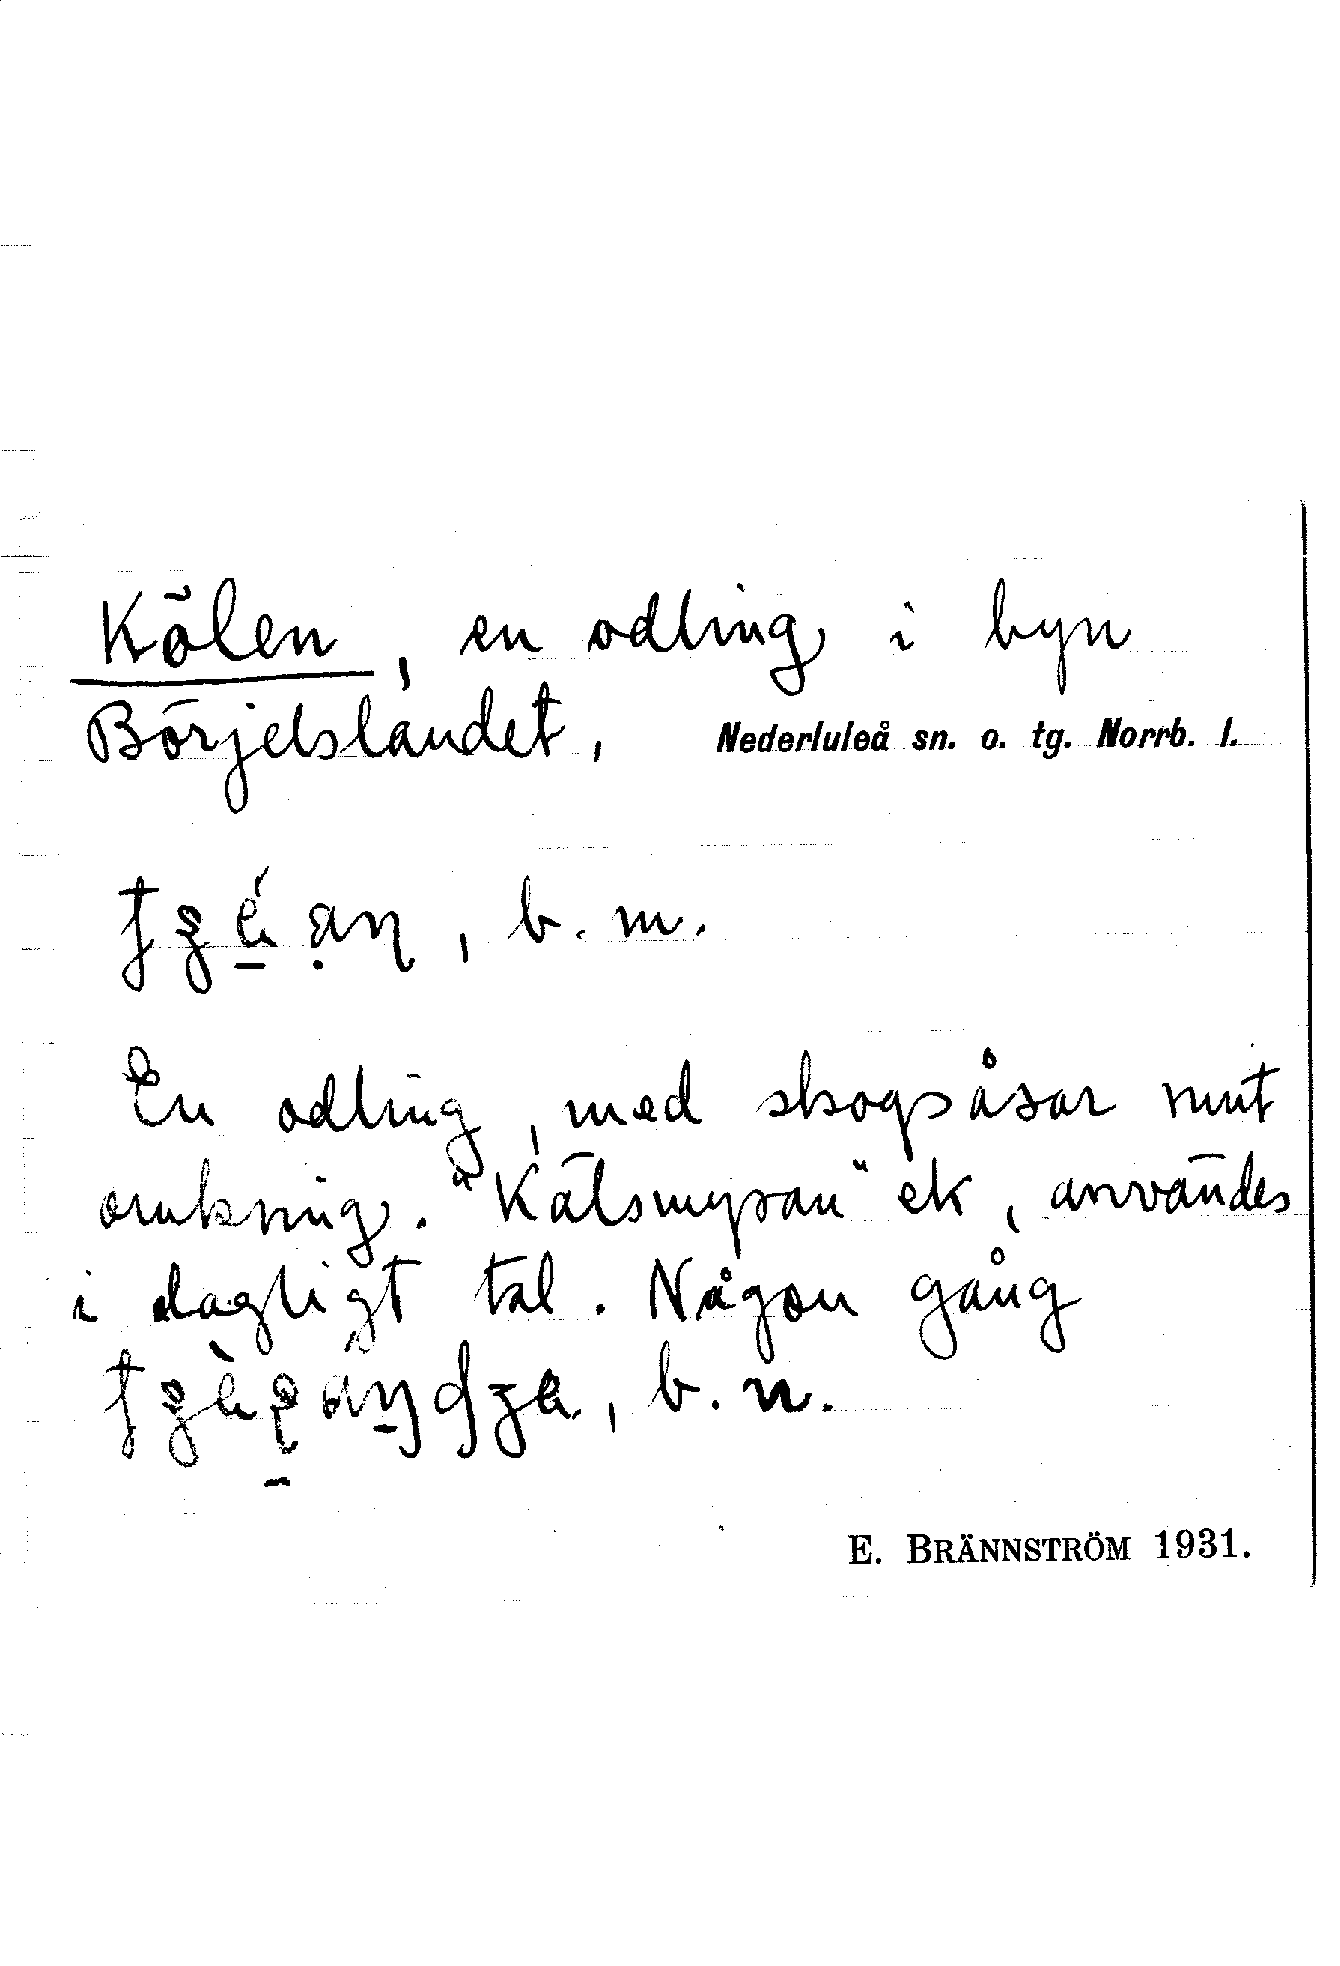 Kölen, en odling i byn
Börjelslandet, Nederluleå sn. o. tg. Norrb. l.
, b. m.
En odling, med skogsåsar runt
omkring. "Kälsmyran" ek, användes
i dagligt tal. Någon gång
, b. n.
E. BRÄNNSTRÖM 1931.